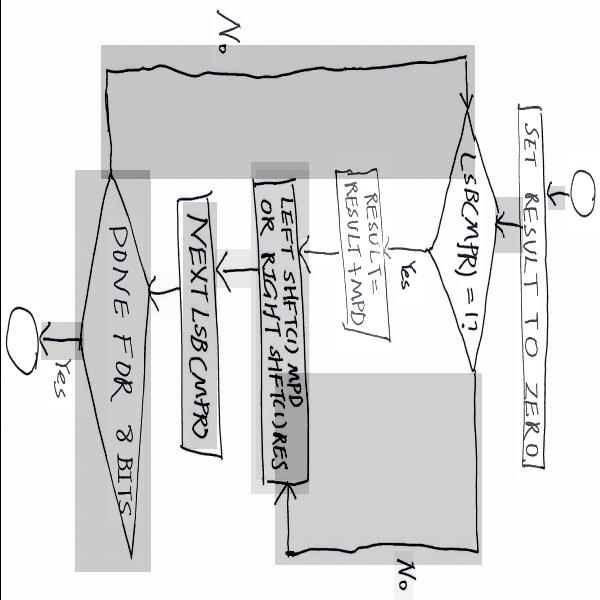 SET RESULT TO ZERO
LSB(MPR) = 1?
Yes
No
RESULT =
RESULT + MPD
LEFT SHFT(1) MPD
OR RIGHT SHFT(1) RES
NEXT LSB(MPR)
DONE FOR 8 BITS
No
Yes